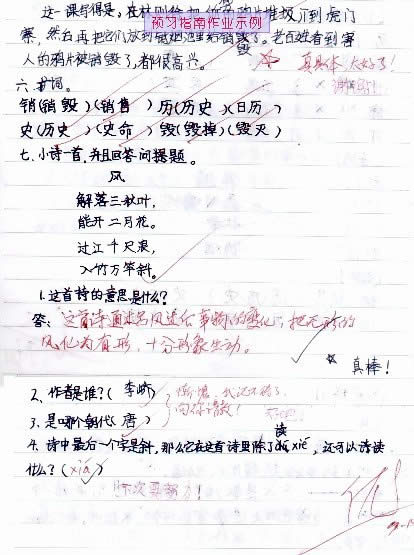 预习指南作业示例
这一课写得是，在林则徐把 的鸦片堆放 到虎门
寨，然后再把它们放到销烟池里给销毁了。老百姓看到害
人的鸦片被销毁了，都很高兴。
毁
真具体 太好了！
谢谢！
六、扩词。
销(销毁)(销售)历(历史)(日历)
史(历史)(史命)毁(毁掉)(毁灭)
七、小诗一首，并且回答问题题。
风
解落三秋叶，
能开二月花。
过江千尺浪，
入竹万竿斜。
1.这首诗的意思是什么？
答：这首诗通过写风送给事物的变化，把无形的
风化为有形，十分形象生动。
真棒！
2、作者是谁？(李峤)
向你 ！
3、是哪个朝代(唐)
读
4、诗中最后一个字是斜，那么它在这首诗里除了读xié，还可以请读
什么？(xiá)
下次要努力！
优